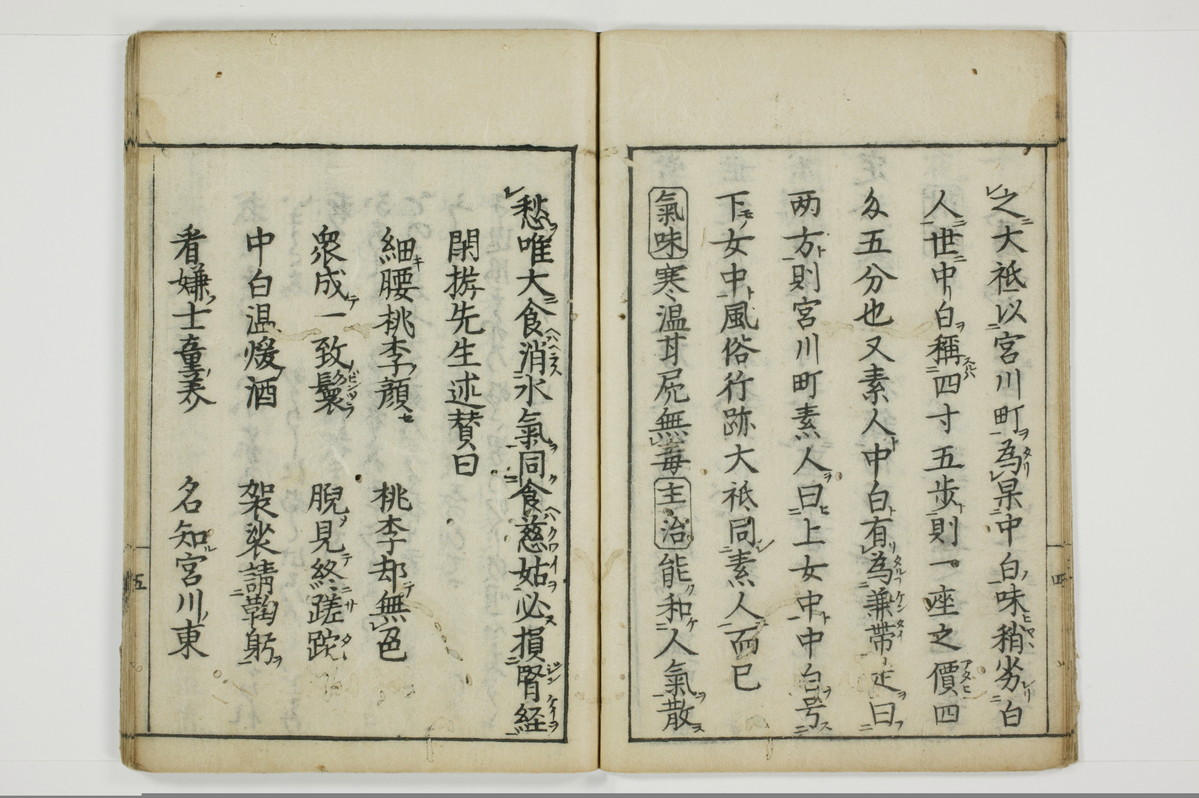 之大祗以宮川町為杲中白味稍劣白
人世中白稱四寸五歩則一座之價四
匁五分也又素人中白有為兼帯疋曰
両方則宮川町素人曰上女中中白号
下女中風俗行跡大祗同素人而已
氣味寒温耳屁無毒主治能和人氣散
愁唯大食消水氣同食慈姑必損腎経
閑斿先生述賛曰
細腰桃李顔 桃李却無色
衆成一致鬟 腉見終蹉跎
中白温煖酒 袈裟請鞠躬
看嫌士童 名知宮川東
四
五